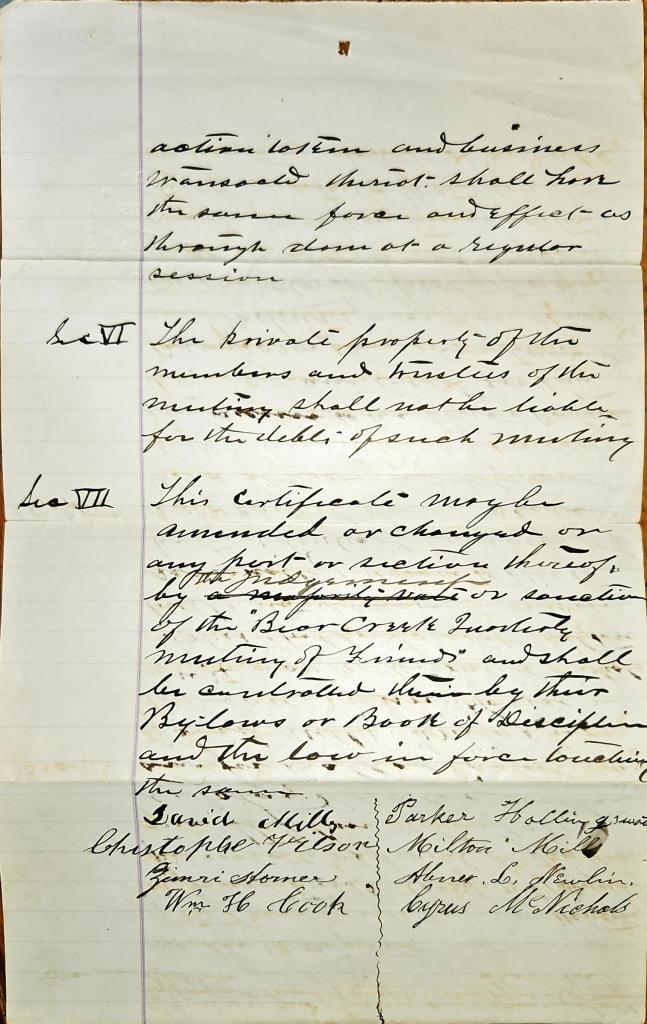 action taken and business
transacted thereat. shall have
the same force and effect as
through done at a regular
session
Sec VI The private property of the
members and trustees of the
meeting shall not be liable
for the debts of such meeting
Sec VII This certificate may be
amended or changed or
any part or section thereof,
the judgement
by a majority vote or sanction
of the "Bear Creek Quarterly
meeting of Friends" and shall
be controlled then by their
By-laws or Book of Discipline
and the law in force touching
the same.
David Mills Parker Hollingsworth
Christopher Wilson Milton Mills
Zimri Horner Abner L. Newlin.
Wm H Cook Cyrus McNichols